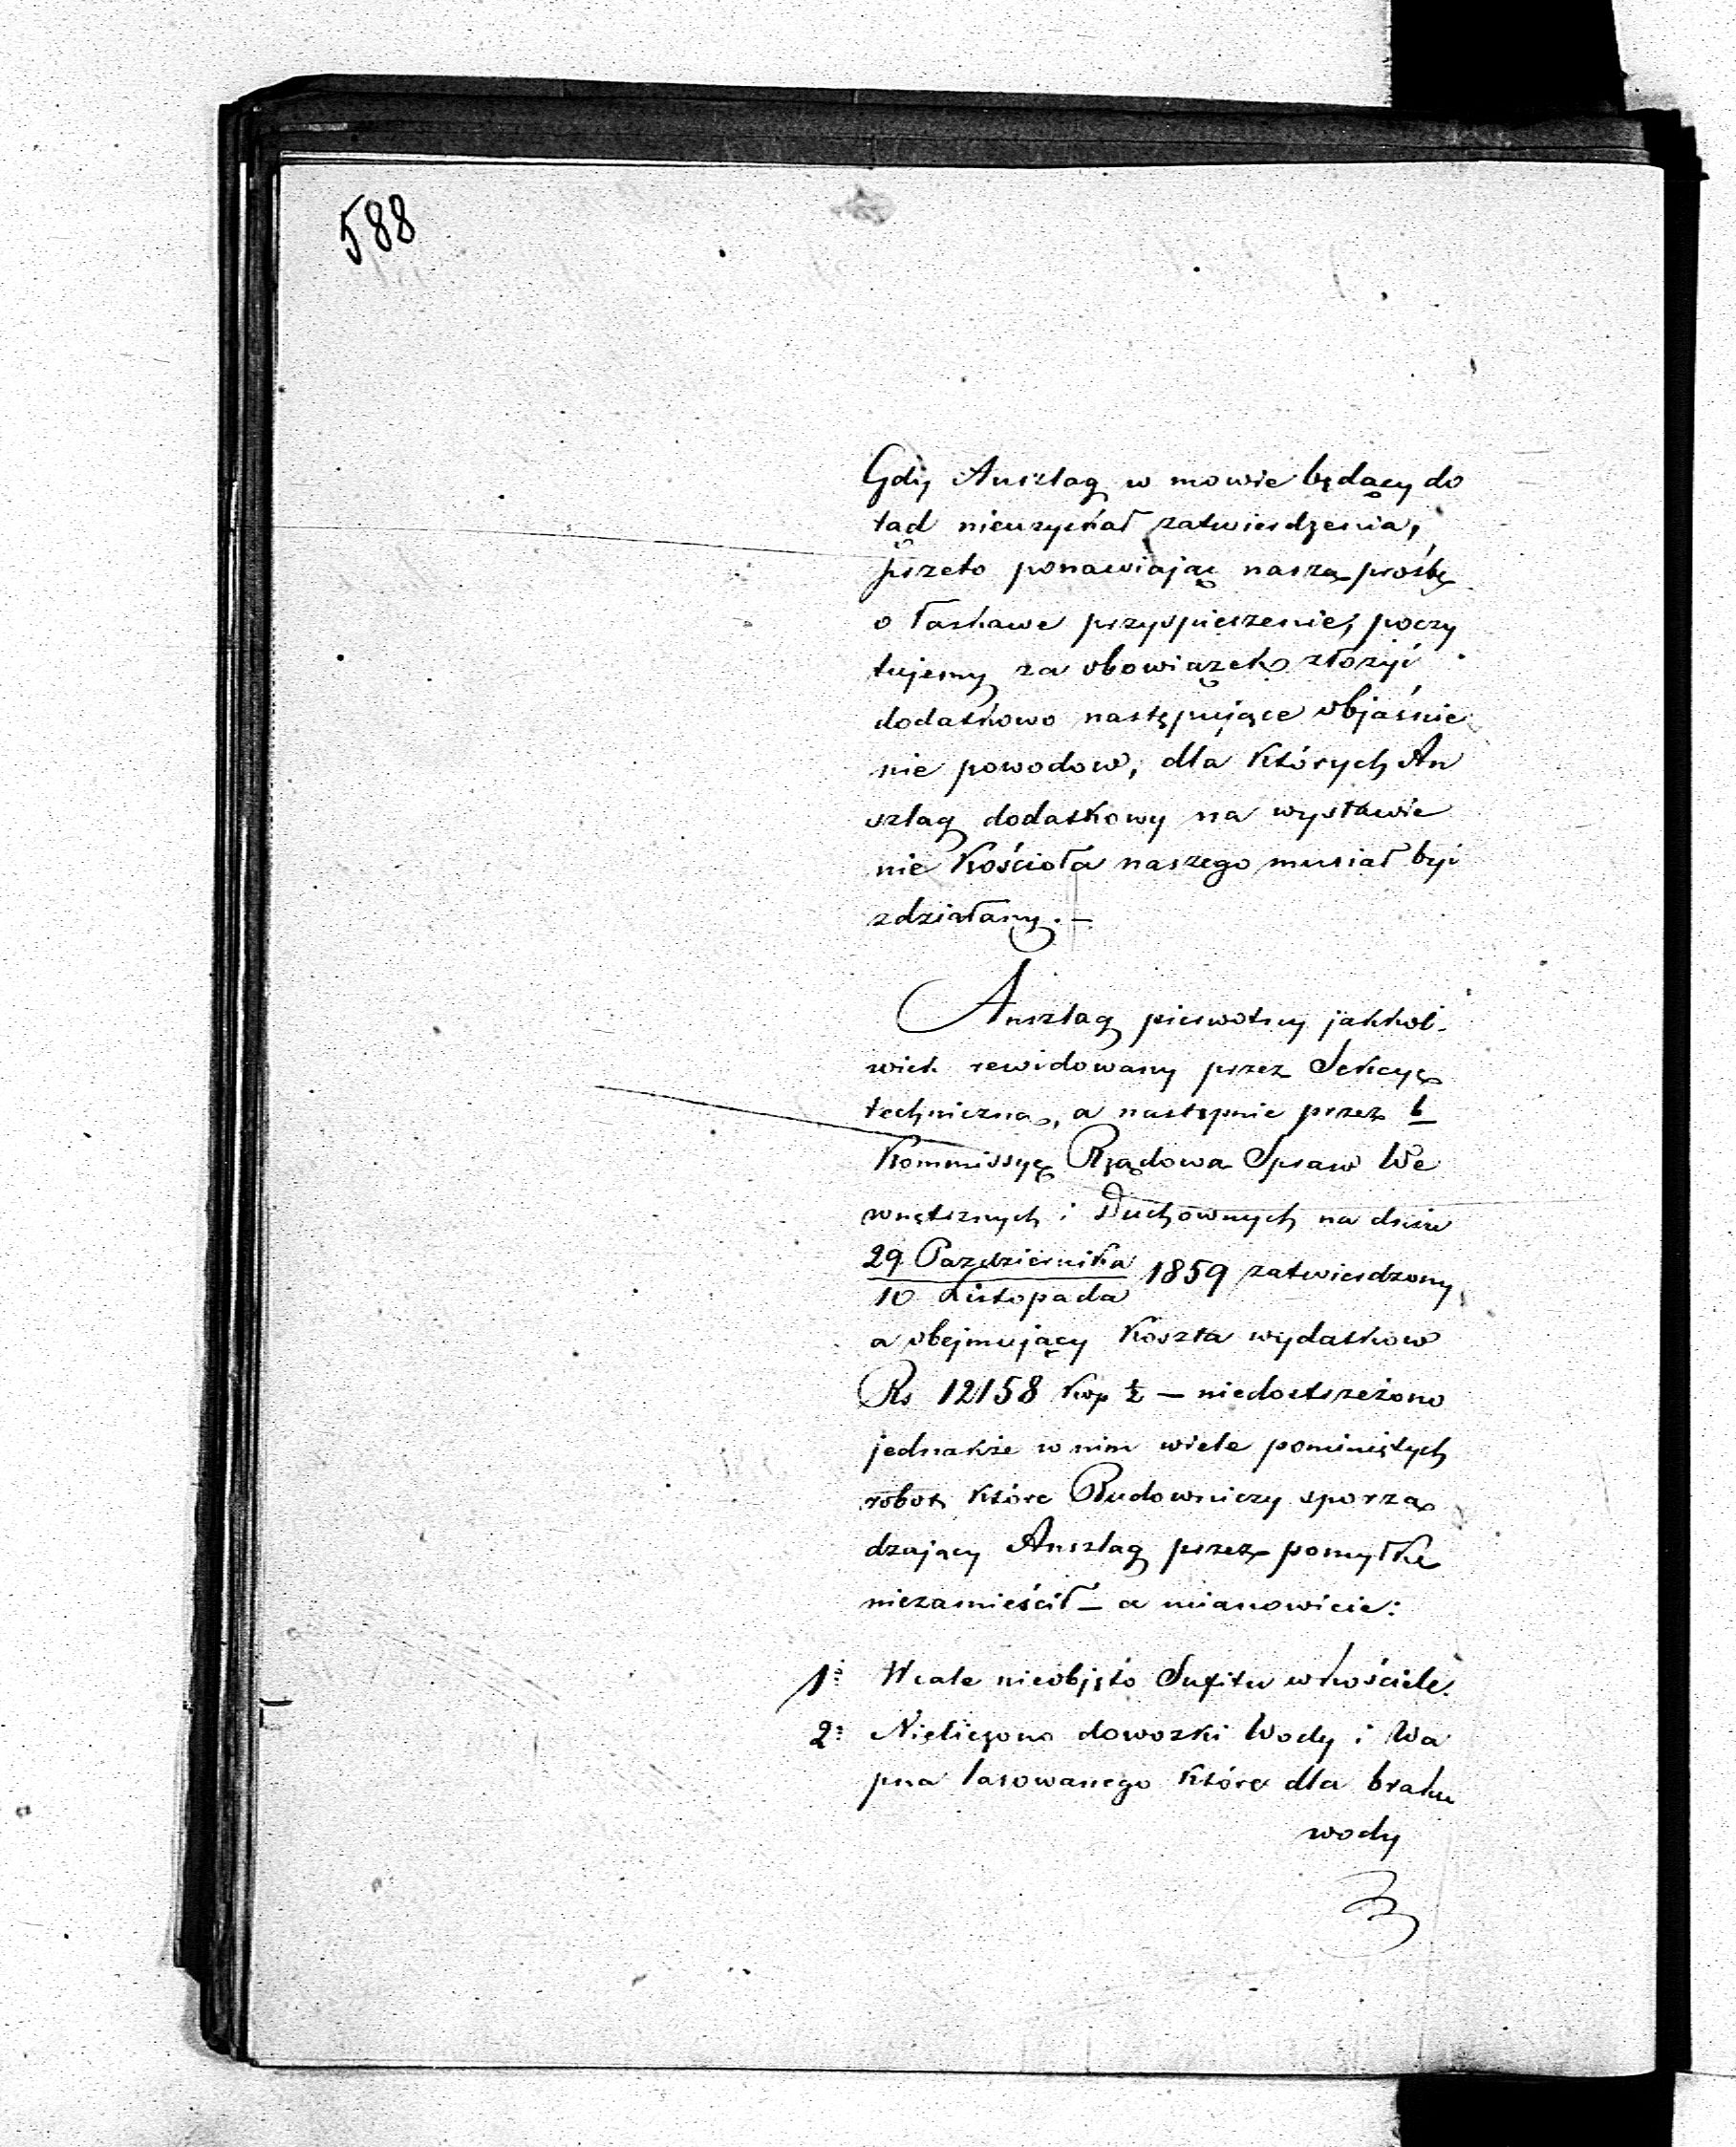 588
Gdy Anszlag w mowie będący do
tąd nieuzyskał zatwierdzenia,
przeto ponawiając naszą prośbę
o łaskawe przyspieszenie, poczy
tujemy za obowiązek złożyć
dodatkowo następujące objaśnie
nie powodow, dla których An
szlag dodatkowy na wystawie
nie Kościoła naszego musiał być
zdziałany. —
Anszlag pierwotny jakkol-
wiek rewidowany przez Sekcyę
techniczną, a następnie przez
Kommissyę Rządowa Spraw We
wnętrznych i Duchownych na dniu
29 Pazdziernika
10 Listopada 1859 zatwierdzony,
a obejmujący Koszta wydatkow
Rs 12158 kop ½ — niedostrzeżono
jednakże w nim wiele pominiętych
robot które Budowniczy sporzą
dzający Anszlag przez pomyłkę
niezamieścił — a mianowicie:
1: Wcale nieobjęto Sufitu w kościele.
2: Nieliczono dowozki Wody i Wa
pna lasowanego które dla braku
wody